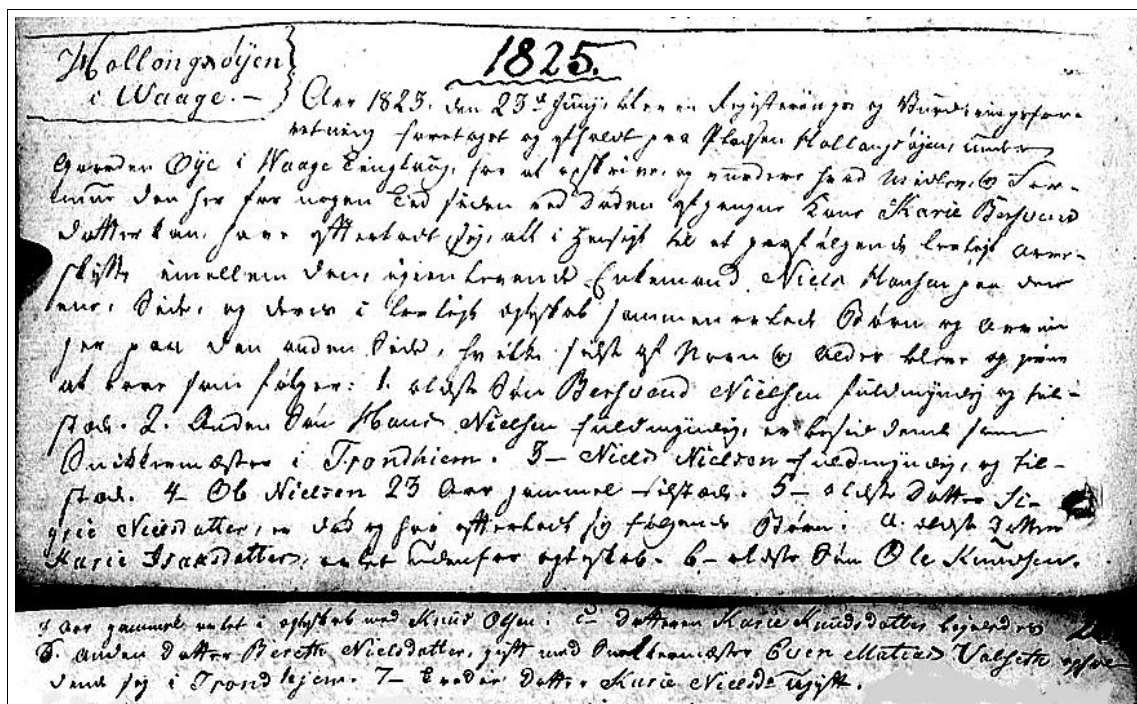 1825.
Hollongsøÿen
i Waage. –
Aar 1825. den 23de Junÿ, blev en Registerings og Vurderingsfor-
retning foretaget og afholdt paa Pladsen Hollongsøÿen, under
Gaarden Øÿe i Waage Tinglaug, for at opskrive, og vurdere hvad Midler og For-
mue den her for nogen Tid siden ved Døden afgangne Kone Karie Bersvend
datter kan have efterladt sig, alt i Hensigt til et paafølgende lovligt Arve-
skifte imellem den igien levende Enkemand Niels Hansen paa den
ene Side, og deres i lovligt ægteskab sammen avlede Børn og Arvin
ger paa den anden Side, hvilke sidst af Navn og Alder bleve op givne
at være som følger: 1. ældste Søn Bersvend Nielsen fuldmÿndig og til-
stæde. 2. Anden Søn Hans Nielsen fuldmÿndig, er boesid dende som
Snikkermæster i Trondhiem. 3– Niels Nielsen fuldmÿndig, og til-
stæde. 4– Ole Nielsen 23 Aar gammel tilstæde. 5– ældste Datter Si-
grie Nielsdatter, er død og har efterladt sig følgende Børn: a. ældste Datter
Karie Isaksdatter, avlet udenfor ægteskab. b– ældste Søn Ole Knudsen.
Aar gammel avlet i ægteskab med Knud Olsen. c– Datteren Karie Knudsdatter
6. Anden Datter Bereth Nielsdatter, gift med Snikkermæster Even Matias Valseth ophol-
dende sig i Trondhjem. 7– Tredie Datter Karie Nielsdr ugift.